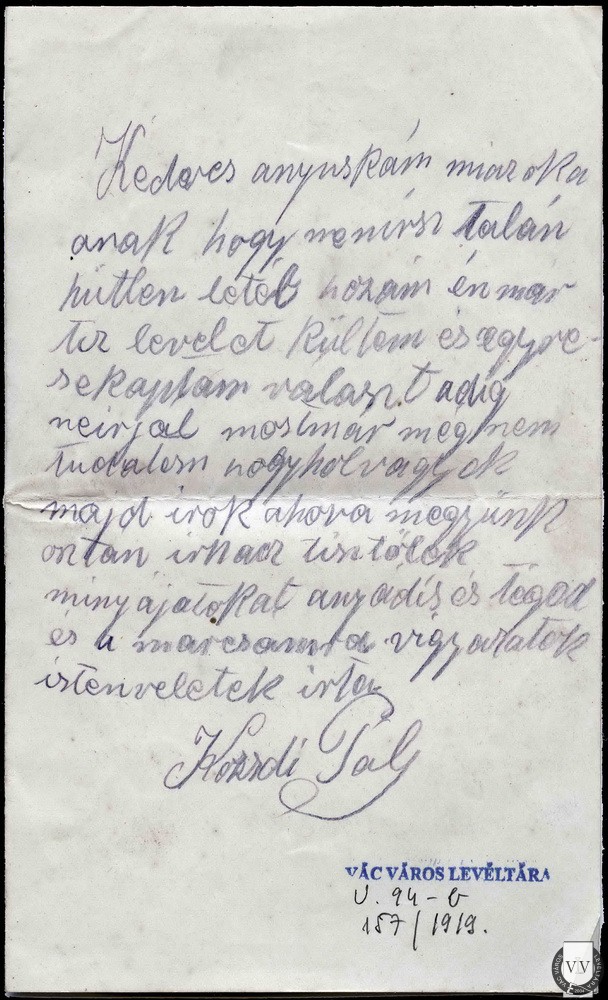 Kedves anyuskám miaz oka
anak hogy nemirsz talán
hűtlen letél hozám én már
tiz levelet kűltem és egyre
sekaptam választ adig
neirjal mostmár mégnem
tudatom hogyholvagyok
majd irok ahova megyűnk
osztan irhacz tisztölök
minyájatokat anyádis és tégöd
és a marcsamra vigyazatok
istenveletek irta
Pál
VÁC VÁROS LEVÉLTÁRA
V. 94-b
157/1919.
VLV